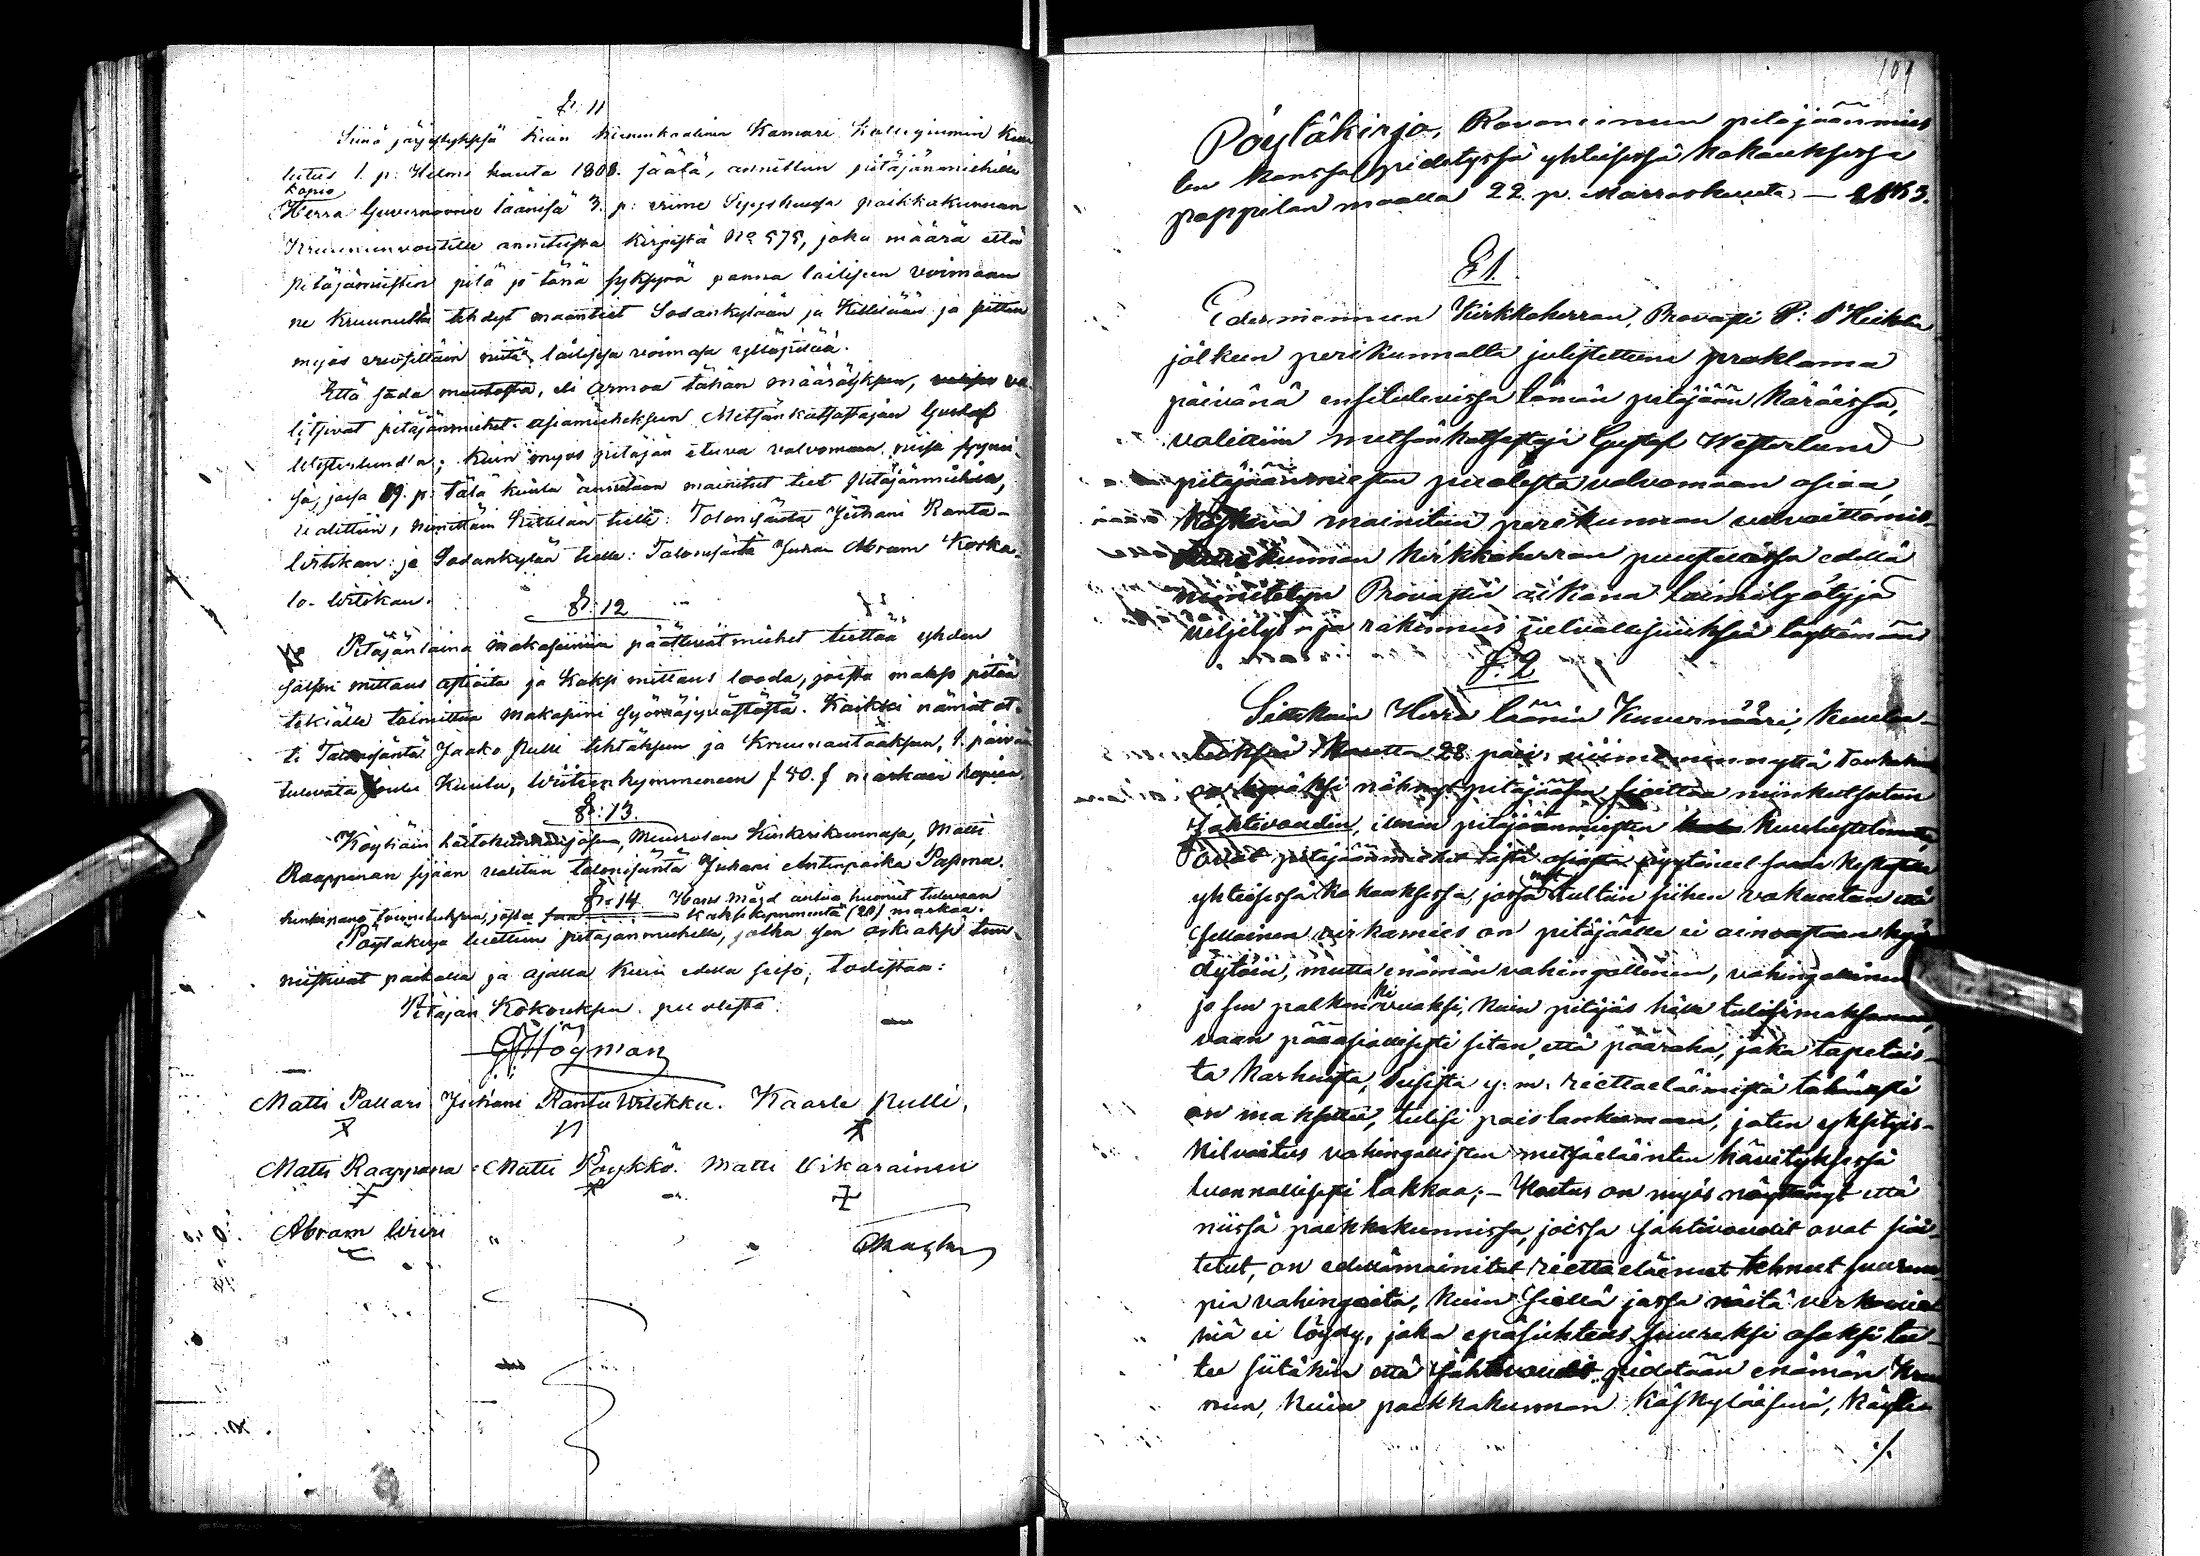 §. 11
Siinä järjestyksesä kuin Keisarikaalinen Kamari Kollegiumin Kuu
lutus 1. p: Helmi kuuta 1808. säätä, annettiin pitäjänmiehille
Kopio
Herra Guvernörin läänisä 3. p: viime Syyskuusa paikkakunnan
Kruununvoutille annetusta kirjästä No 575, joka määrä että
pitäjänmiesten pitä jo tänä syksynä panna lailiseen voimaan
ne kruunulta tehdyt maantiet Sodankylään ja Kittilään ja sitten
myös vuosittain niitä lailisesa voimasa ylläpitää.
Että saada muutosta, eli armoa tähän määräyksen, va
litsivat pitäjänmiehet asiamieheksen Metsänkatsastajan Gustaf
Westerlund'a; kuin myös pitäjän etuva valvomaan niisä syyni
sä, joisa 29. p: tätä kuuta annetaan mainitut tiet pitäjänmiehille,
valittiin, nimittäin Kittilän tielle: Talonisäntä Juhani Ranta-
Wiikan: ja Sodankylän tielle: Talonisäntä Juhan Abram Korka-
lo- Wiikan.
§. 12
Pitäjänlaina makasiinin päättivät miehet teettää yhden
salpoi mittaus astioita ja Kaksi mittaus looda, joista makso pitää
tekiälle toimittaa makasiini syömäjyvästöstä. Kaikki nämät ot-
ti Talonisäntä Jaako Pulli tehtäksen ja Kruunautaaksen, 1. päivä
tulevata Joulu Kuuta, Wiitenkymmeneen { 50. } markan hopia.
§. 13.
Köyhäin hoitokunnasa, Muurolan Kinkerikunnasa, Matti
Raappanan sijaan valitiin talonisäntä Juhani Antinpoika Pasma.
§. 14 Hans Mäjd antoa huonet tulevaan
hinkipano toimituksen, josta saa kaksikymmentä (20) markaa.
Pöytäkirja luettiin pitäjänmiehille, jotka sen oikiaksi tun-
nustivat paikalla ja ajalla kuin edellä seiso, todistaa:
Pitäjän Kokouksen puolesta:
G Högman
Matti Pallari Juhani Ranta Wiikka. Kaarle Pulli,
Matti Raappana Matti Pöykkö. Matti Vikarainen
Abram Wiiri "
109
Pöytäkirja, Rovaniemen pitäjäänmies
ten kanssa pidetyssä yhteisessä kokouksessa
pappilan maalla 22. p. Marraskuuta — 1863.
§ 1.
Edesmenneen Kirkkoherran, Provasti P: P Heikelin
jälkeen perikunnalle julistettuna proklama
päivänä ensitulevissa tämän pitäjään käräissa,
valittiin metsänkatsastaja Gustaf Westerlund
pitäjäänmiesten puolesta valvomaan asiaa,
koskeva mainitun perikunnan velvoittamis-
seurakunnan kirkkoherran puustellissa edellä
nimitetyn Provastin aikana laimilyötyjä
viljelys- ja rakennus velvollisuuksia täyttämään
§. 2
Sittekuin Herra läänin Kuvernööri, kuulu-
tuksessa 28 päiv. viimemennyttä Toukokuu
on hyväksi nähnyt pitäjääsen sioittaa niinkutsutun
Jahtivoudin, ilman pitäjäänmiesten kuulustelemata,
ovat pitäjäänmiehet tästä asiasta pyytäneet saada keskustella
yhteisessä kokouksessa jossa tultiin siihen vakuutan että
sellainen virkamies on pitäjäälle ei ainoastaan hyö
dytöin, mutta enämän vahingollinen, vahingollinen
jo sen palkan vuoksi, kuin pitäjäs hälle tulisi maksamaan,
vaan pääasiallisesti sitan, että pääraha, joka tapetuis-
ta karhuista, susista y. m. riettaeläimistä tähänasti
on maksettu, tulisi pois lankemaan, joten yksityis-
kilvoitus vahingollisten metsäeläinten hävityksessä
luonnollisesti lakkaa; — Koetus on myös näyttänyt että
niissä paikkakunnissa, joissa jahtivoudit ovat sioi
tetut, on edellämainitut riettaeläimet tehneet suurem
pia vahingoita, kuin siellä jossa näitä virkamiehi
niä ei löydy, joka epäsuhteus suureksi osaksi tu-
lee siitäkin että jahtivoudit pidetään enämän Kruu
nun, kuin paikkakunnan käskyläisenä, käyte
./.